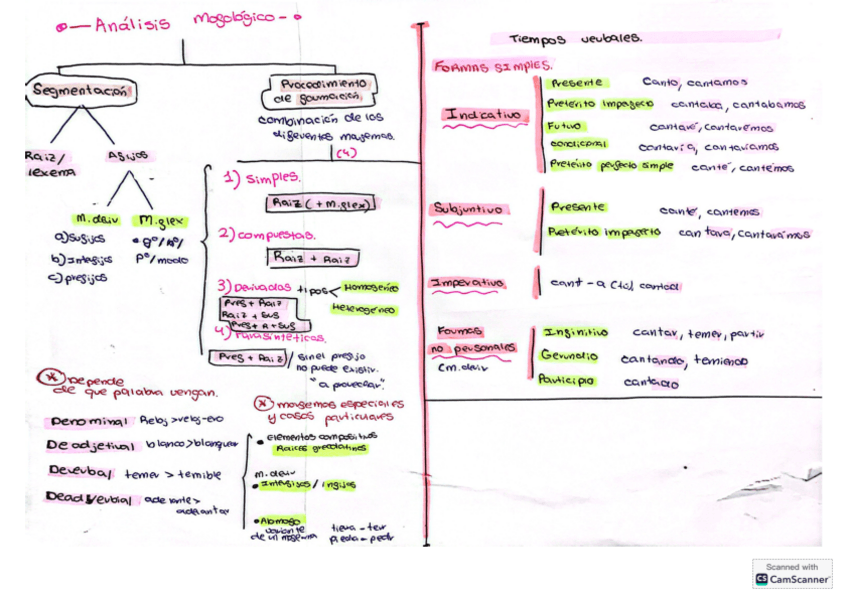 Análisis Mogológico
Segmentación
Raiz/
lexema
Asijos
M.deriv
a) Sugijos
b) Intesijos
c) presijos
M.glex
• gº/nº/
pº/modo
Procedimiento
de goumación
combinación de los
digeventes mogemas.
(4)
1) Simples.
Raiz (+ M.glex)
2) compuestas.
Raiz + Raiz
3) Derivadas tipos
Homogéneo
Heterogéneo
Pres + Raiz
Raiz + Sus
Pres + R + Sus
4) Parasintéticas.
Pres + Raiz / sin el presijo
no puede existir.
"aprovechar"
* Depende
de que palabra vengan.
Denominal Reloj > reloj-ero
Deadjetival blanco > blanquear
Deverbal temer > temible
Deadverbial adelante >
adelantar
* morgemas especiales
y casos particulares
• Elementos compositivos
Raices grecolatinas
m.deriv
• Intersijos / ingijos
• Alomogo
variante
de un mogema
tierra - terr
piedra - pedr
Tiempos verbales.
FORMAS SIMPLES.
Indicativo
Presente Canto, cantamos
Pretérito Impergecto cantaba, cantabamos
Futuro cantaré, cantaremos
condicional cantaría, cantaríamos
Pretérito pergecto simple canté, cantemos
Subjuntivo
Presente cante, cantemos
Pretérito impergecto cantara, cantaramos
Imperativo
cant - a (tú), cantad
Formas
no personales
(m.deriv
Inginitivo cantar, temer, partir
Gerundio cantando, temiendo
Participio cantado
Scanned with
CS CamScanner